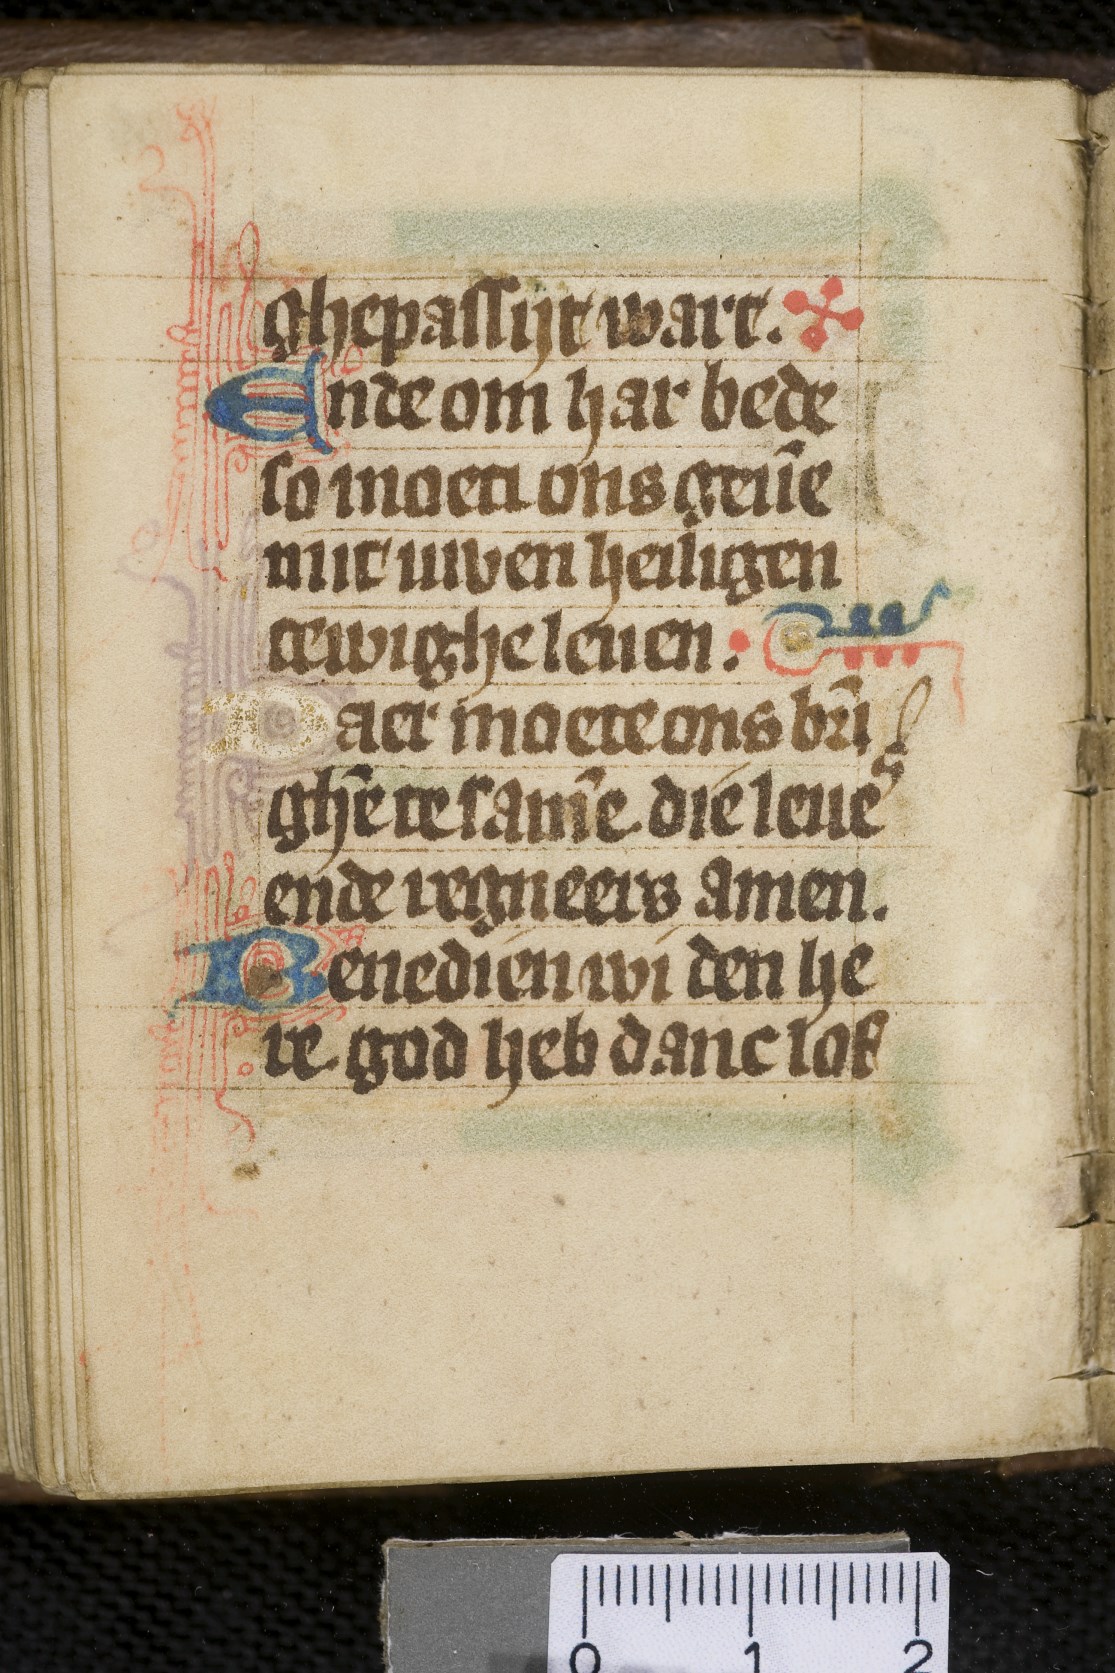 ghepassijt wart.
Ende om har bede
so moeti ons geuē
mit uwen heiligen
tewighe leuen.
Daer moete ons brī
ghē te samē die leue
ende regneers amen.
Benedien wi den he
re god heb danc lof
0 1 2